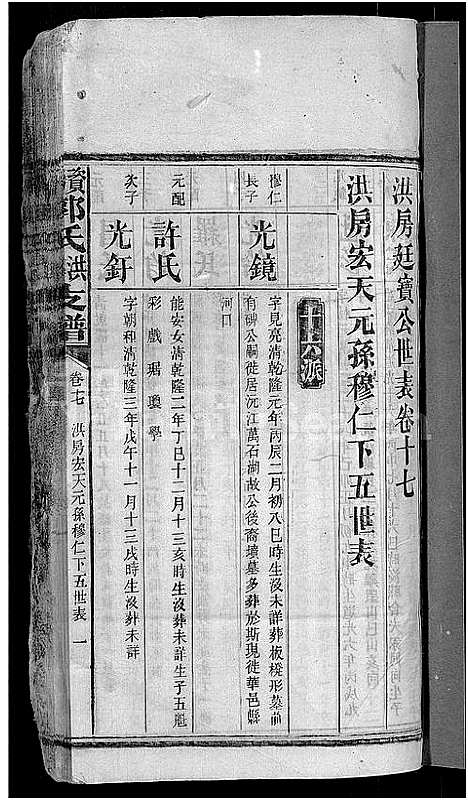 洪房廷簀公世表卷十七
洪房宏天元孫穆仁下五世表
五十六派
穆仁長子
光鏡
字見亮清乾隆元年丙辰二月初八巳時生沒未詳葬板櫈形墓前
有碑公嗣徙居沅江萬石湖故公後裔墳墓多葬於斯現徙華邑縣
河口
元配
許氏
能安女清乾隆二年丁巳十二月十三亥時生沒葬未詳生子五
彩 戲 琚 瓊 學
次子
光釪
字朝和清乾隆三年戊午十一月十三戌時生沒葬未詳
資郭氏洪支譜
卷十七 洪房宏天元孫穆仁下五世表 一